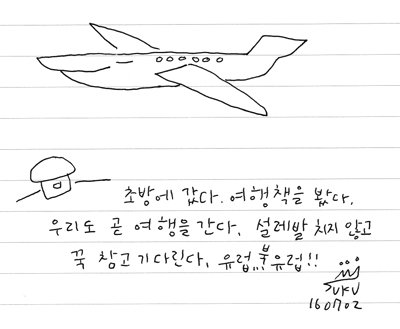 초방에 갔다. 여행책을 봤다.
우리도 곧 여행을 간다. 설레발 치지 않고
꾹 참고 기다린다. 유럽 북유럽!!
160702